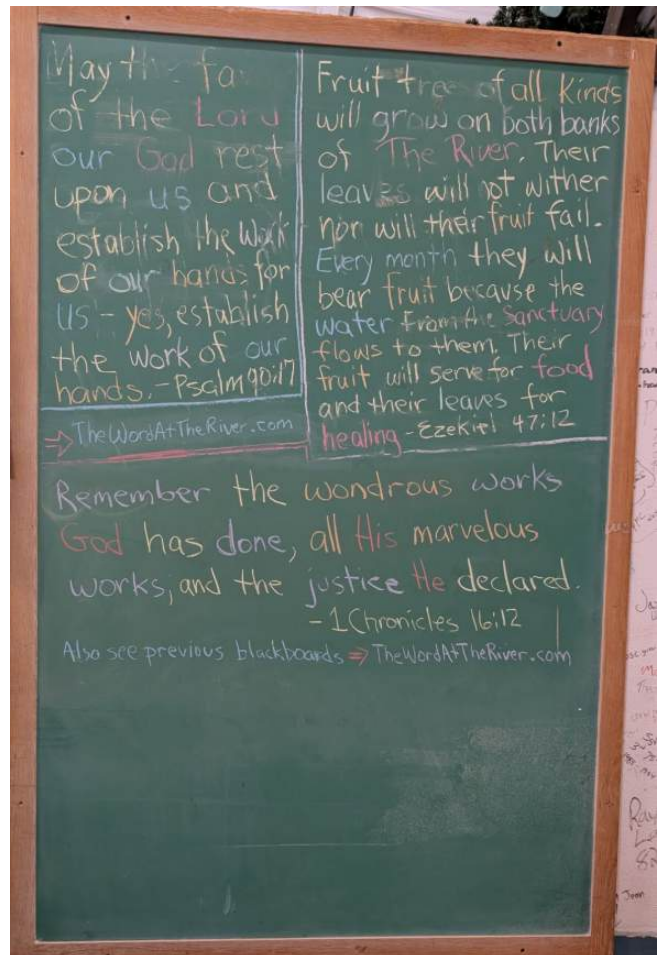 May th fa
of the Lord
our God rest
upon us and
establish the work
of our hands for
us - yes, establish
the work of our
hands. - Psalm 90:17
⇒ TheWordAtTheRiver.com
Fruit tree of all kinds
will grow on both banks
of The River. Their
leaves will not wither
nor will their fruit fail.
Every month they will
bear fruit because the
water from the Sanctuary
flows to them. Their
fruit will serve for food
and their leaves for
healing - Ezekiel 47:12
Remember the wondrous works
God has done, all His marvelous
works, and the justice He declared.
- 1 Chronicles 16:12
Also see previous blackboards ⇒ TheWordAtTheRiver.com